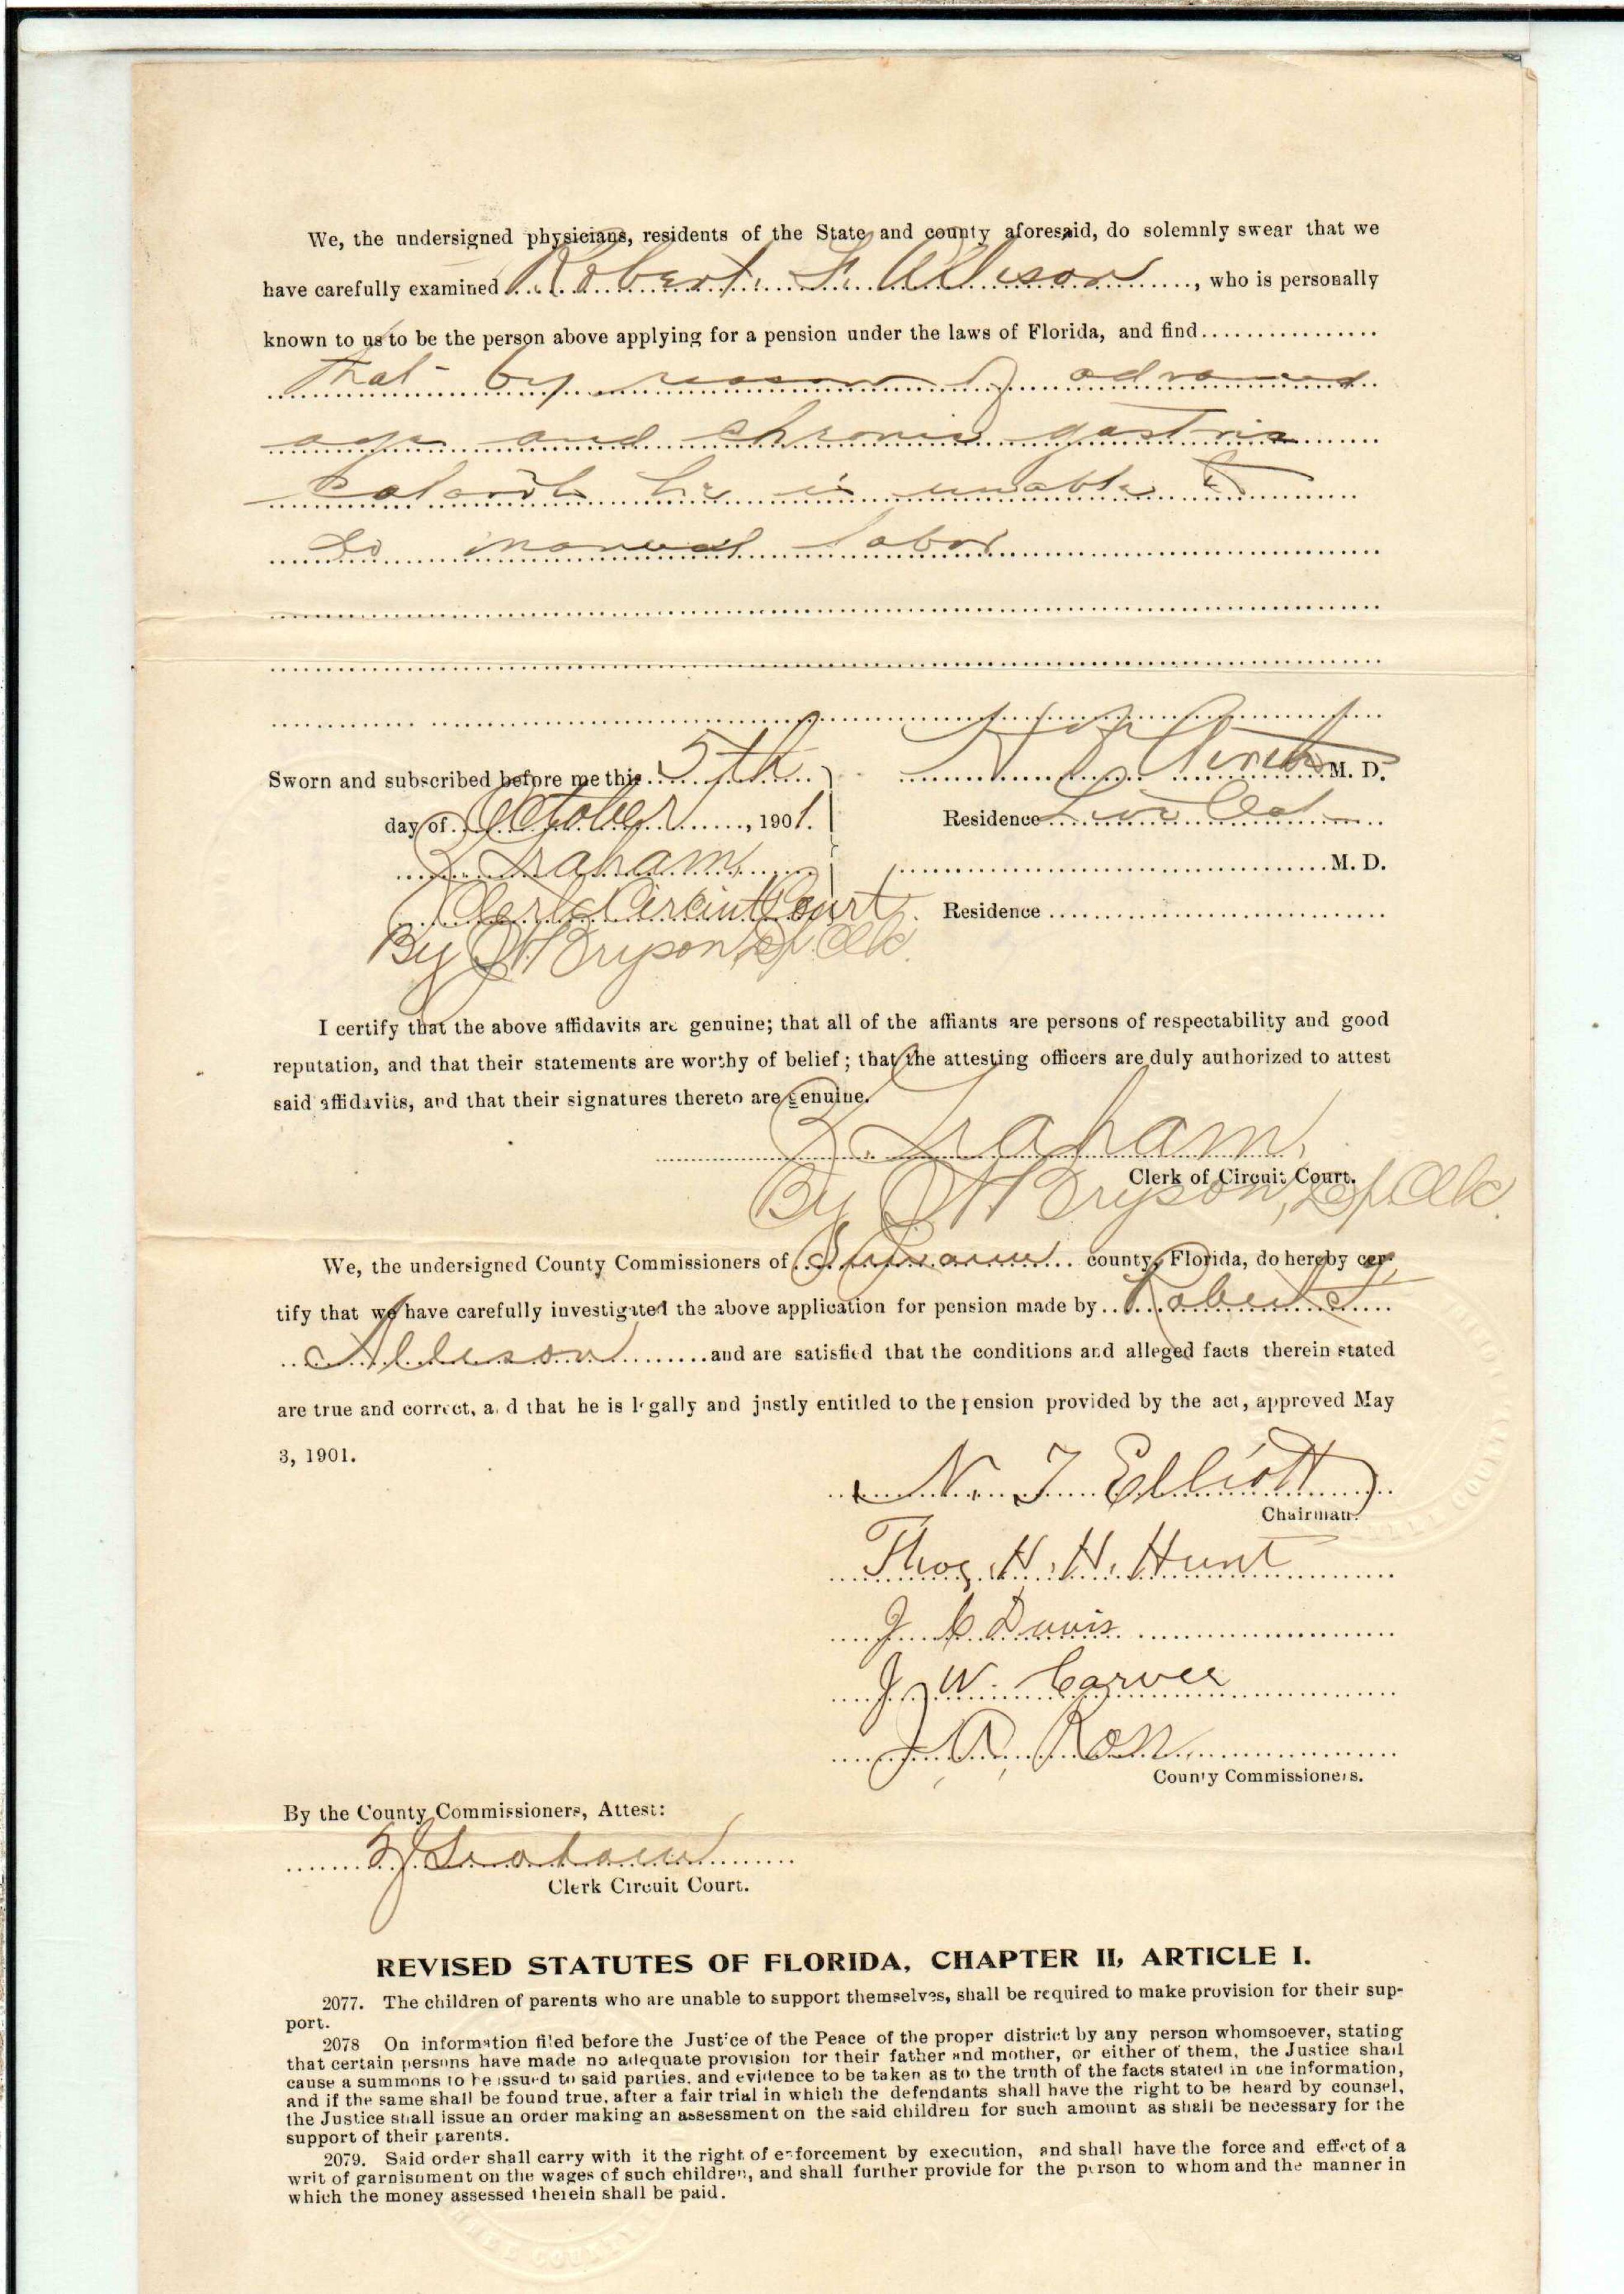 We, the undersigned physicians, residents of the State and county aforesaid, do solemnly swear that we
have carefully examined Robert F. Allison, who is personally
known to us to be the person above applying for a pension under the laws of Florida, and find
that by reason of advanced
age and chronic gastric
catarrh he is unable to
do manual labor
Sworn and subscribed before me this 5th
M. D.
day of October, 1901.
Residence Live Oak
Graham
M. D.
Clerk Circuit Court
Residence
By Bryson, Dp Clk.
I certify that the above affidavits are genuine; that all of the affiants are persons of respectability and good
reputation, and that their statements are worthy of belief; that the attesting officers are duly authorized to attest
said affidavits, and that their signatures thereto are genuine.
Graham
Clerk of Circuit Court.
By Bryson, Dp Clk.
We, the undersigned County Commissioners of Suwannee county, Florida, do hereby cer-
tify that we have carefully investigated the above application for pension made by Robert F
Allison and are satisfied that the conditions and alleged facts therein stated
are true and correct, and that he is legally and justly entitled to the pension provided by the act, approved May
3, 1901.
N. T. Elliott
Chairman.
Thos. H. H. Hunt
J C Davis
J. W. Carver
County Commissioners.
By the County Commissioners, Attest:
Graham
Clerk Circuit Court.
REVISED STATUTES OF FLORIDA, CHAPTER II, ARTICLE I.
2077. The children of parents who are unable to support themselves, shall be required to make provision for their sup-
port.
2078 On information filed before the Justice of the Peace of the proper district by any person whomsoever, stating
that certain persons have made no adequate provision for their father and mother, or either of them, the Justice shall
cause a summons to be issued to said parties, and evidence to be taken as to the truth of the facts stated in the information,
and if the same shall be found true, after a fair trial in which the defendants shall have the right to be heard by counsel,
the Justice shall issue an order making an assessment on the said children for such amount as shall be necessary for the
support of their parents.
2079. Said order shall carry with it the right of enforcement by execution, and shall have the force and effect of a
writ of garnishment on the wages of such children, and shall further provide for the person to whom and the manner in
which the money assessed therein shall be paid.